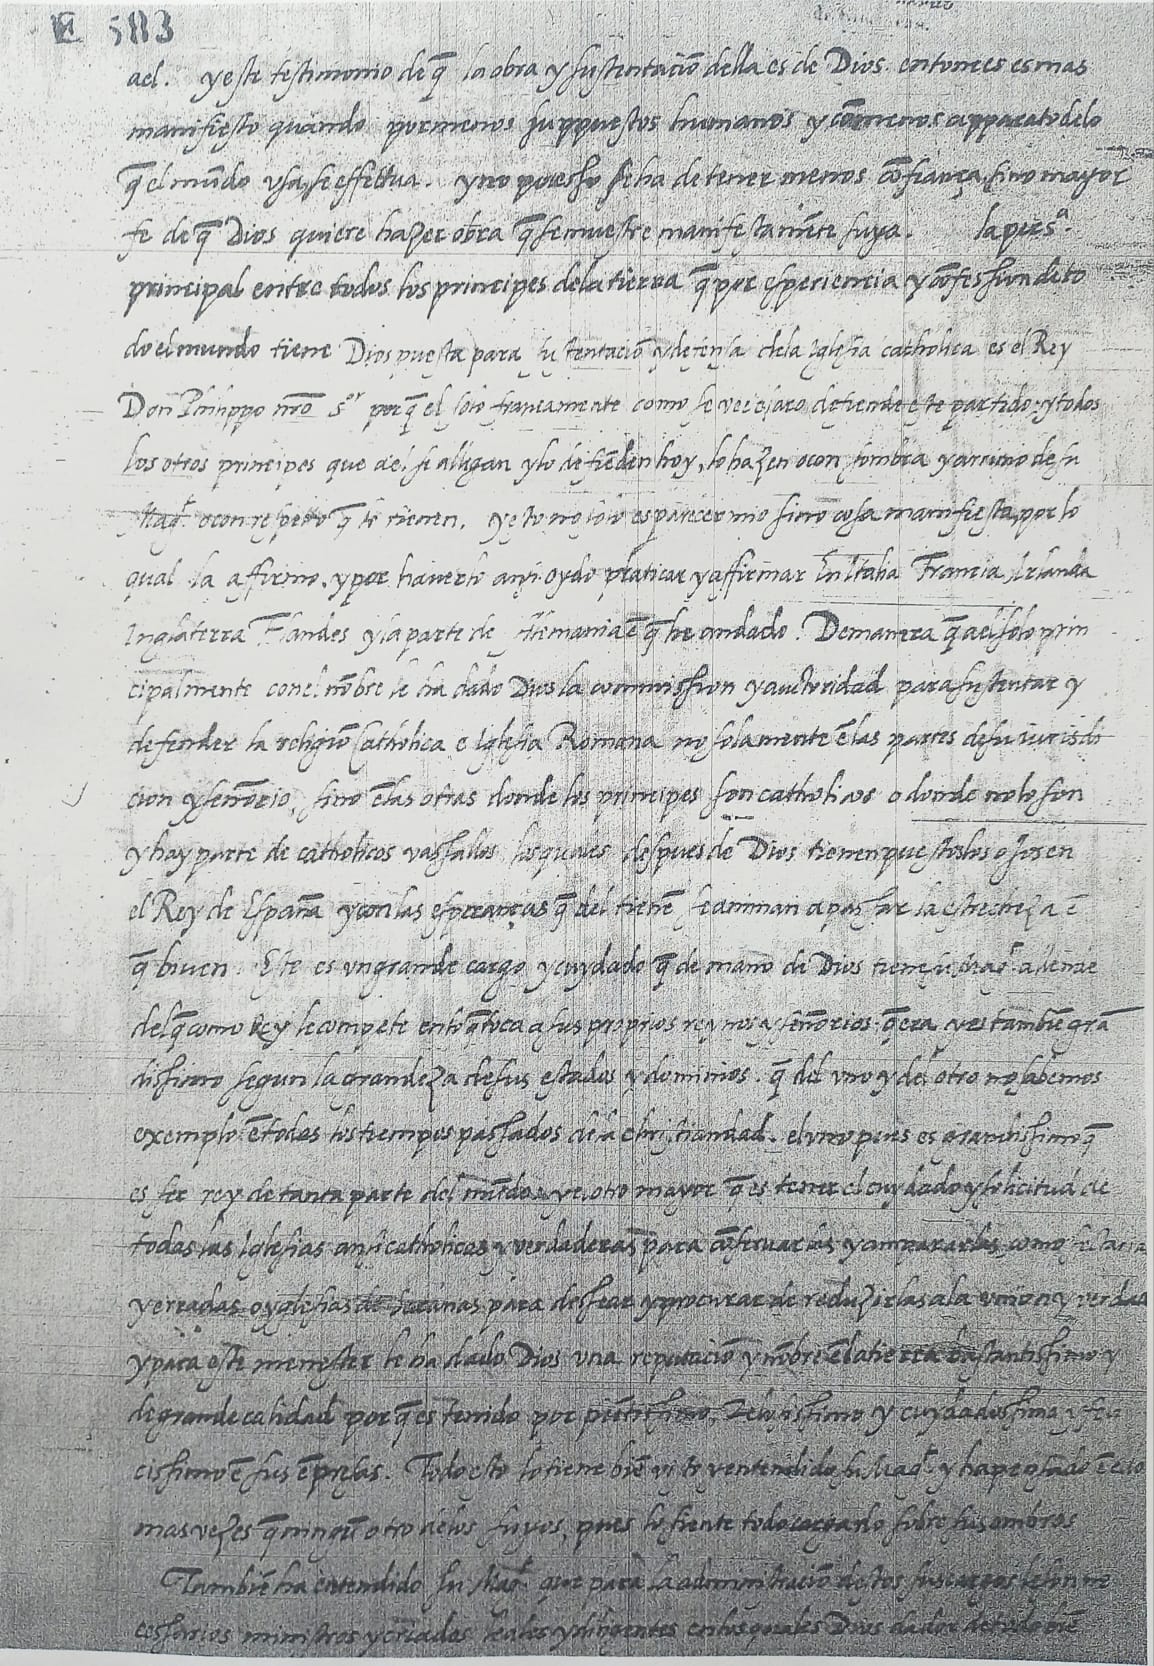 E 583
ael. y este testimonio de q̃ la obra y sustentaciõ della es de Dios. entonces es mas
manifiesto quando por menos juppuestos humanos y cõ menos apparato delo
q̃ el mũdo usa, se effettua. y no por esso se ha de tener menos cõfiança, sino mayor
fe de q̃ Dios quiere hazer obra q̃ se muestre manifestamẽte suya. la pers.ª
principal entre todos los principes dela tierra q̃ por esperiencia y cõfession de to
do el mundo tiene Dios puesta para sustentaciõ y defensa dela Iglesia catholica es el Rey
Don Philippo nr̃o s.or porq̃ el solo francamente como se vee claro defiende este partido, y todos
los otros principes que del se allegan y lo defiẽden hoy, lo hazen o con sombra y arrimo de su
Mag.d o con respetto q̃ le tienen. y esto no solo es parecer mio sino cosa manifiesta, por lo
qual la affirmo. y por haverlo ansi oydo platicar y affirmar En Italia Francia, Irlanda
Inglaterra Flandes y la parte de Alemania ẽ q̃ he andado. De manera q̃ a el solo prin
cipalmente con el nõbre le ha dado Dios la commission y auctoridad para sustentar y
defender la religiõ Catholica e Iglesia Romana no solamente ẽ las partes de su iurisdi
cion y señorio, sino ẽ las otras donde los principes son catholicos o donde no lo son
y hay parte de catholicos vassallos los quales despues de Dios tienen puestos los ojos en
el Rey de España y con las esperanças q̃ del tienẽ se animan a passar la estrecheza ẽ
q̃ biuen. Este es un grande cargo y cuydado q̃ de mano de Dios tiene su Mag.d allende
del q̃ como Rey le compete en lo q̃ toca a sus proprios reynos y señorios q̃ era y es tambiẽ grã
dissimo segun la grandeza de sus estados y dominios. q̃ del uno y del otro no sabemos
exemplo ẽ todos los tiempos passados dela christiandad. el uno pues es grandissimo q̃
es ser rey de tanta parte del mũdo, y el otro mayor q̃ es tener el cuydado y solicitud de
todas las Iglesias ansi catholicas y verdaderas para cõseruarlas y ampararlas, como
y erradas o yglesias de Satanas para dessear y procurar de reduzirlas a la union y verdad
y para este menester le ha dado Dios una reputaciõ y nõbre ẽ la tierra bastantissimo y
de grande calidad porq̃ es tenido por piẽtissimo, Zelosissimo y cuydadossimo y feli
cissimo ẽ sus ẽpresas. Todo esto lo tiene biẽ visto y entendido su Mag.d y ha pensado ẽ ello
mas vezes q̃ ningũ otro delos suyos, pues lo siente todo cargado sobre sus ombros
Tambiẽ ha entendido su Mag.d que para la administraciõ destos sus cargos le son ne
cessarios ministros y criados leales y diligentes en los quales Dios dador de todo biẽ